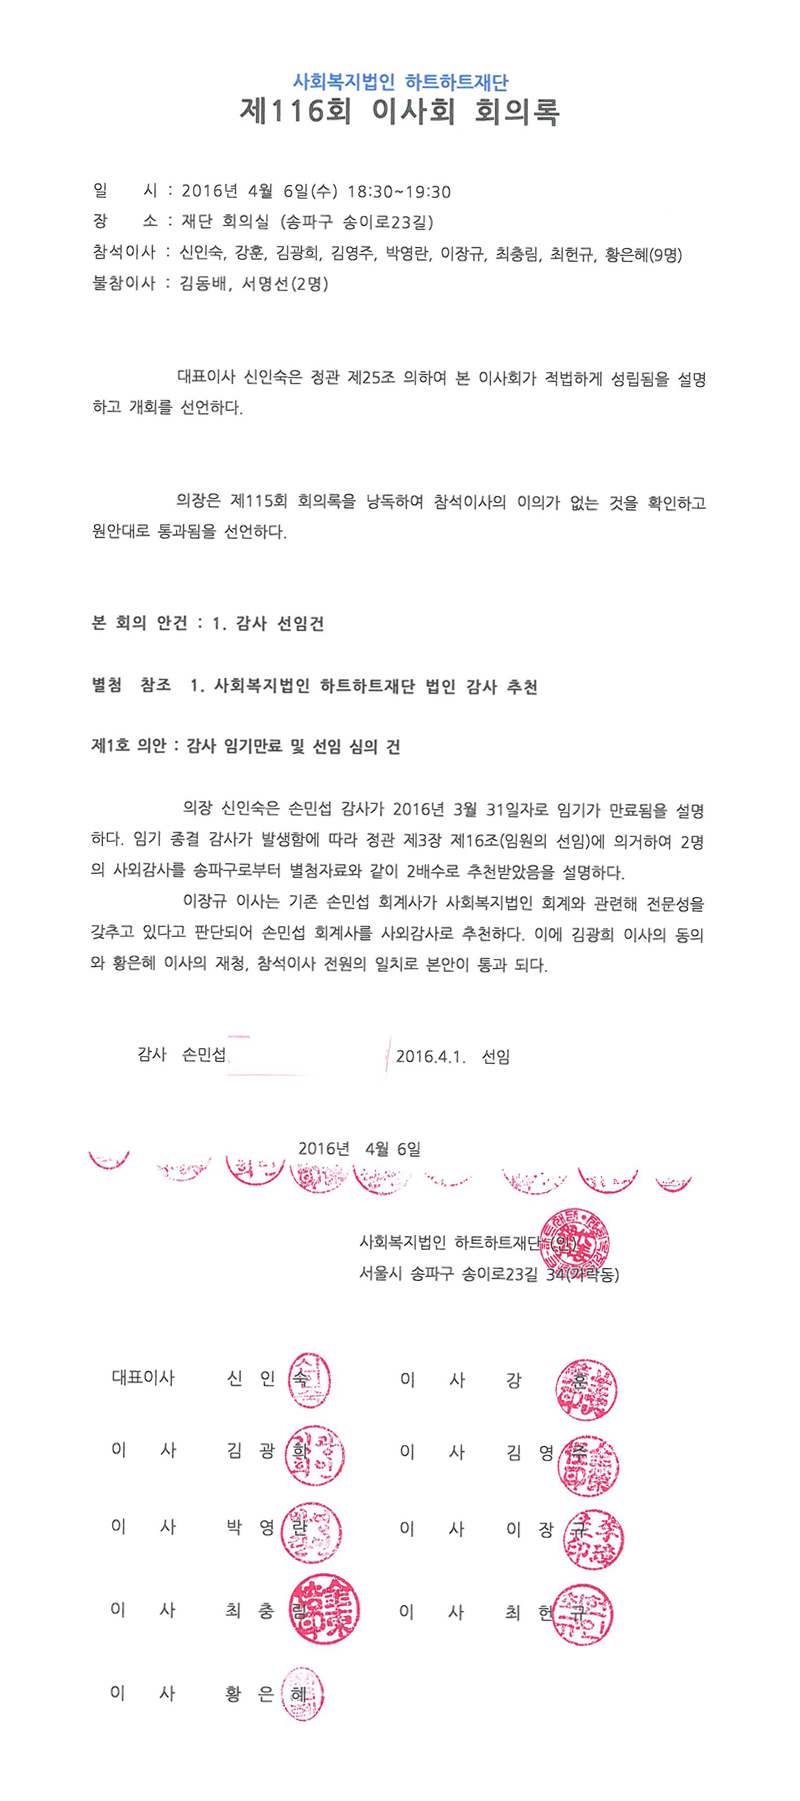 사회복지법인 하트하트재단
제116회 이사회 회의록
일 시 : 2016년 4월 6일(수) 18:30~19:30
장 소 : 재단 회의실 (송파구 송이로23길)
참석이사 : 신인숙, 강훈, 김광희, 김영주, 박영란, 이장규, 최충림, 최헌규, 황은혜(9명)
불참이사 : 김동배, 서명선(2명)
대표이사 신인숙은 정관 제25조 의하여 본 이사회가 적법하게 성립됨을 설명
하고 개회를 선언하다.
의장은 제115회 회의록을 낭독하여 참석이사의 이의가 없는 것을 확인하고
원안대로 통과됨을 선언하다.
본 회의 안건 : 1. 감사 선임건
별첨 참조 1. 사회복지법인 하트하트재단 법인 감사 추천
제1호 의안 : 감사 임기만료 및 선임 심의 건
의장 신인숙은 손민섭 감사가 2016년 3월 31일자로 임기가 만료됨을 설명
하다. 임기 종결 감사가 발생함에 따라 정관 제3장 제16조(임원의 선임)에 의거하여 2명
의 사외감사를 송파구로부터 별첨자료와 같이 2배수로 추천받았음을 설명하다.
이장규 이사는 기존 손민섭 회계사가 사회복지법인 회계와 관련해 전문성을
갖추고 있다고 판단되어 손민섭 회계사를 사외감사로 추천하다. 이에 김광희 이사의 동의
와 황은혜 이사의 재청, 참석이사 전원의 일치로 본안이 통과 되다.
감사 손민섭 2016.4.1. 선임
2016년 4월 6일
사회복지법인 하트하트재단 (인)
서울시 송파구 송이로23길 34(가락동)
대표이사 신 인 숙 이 사 강 훈
이 사 김 광 희 이 사 김 영 주
이 사 박 영 란 이 사 이 장 규
이 사 최 충 림 이 사 최 헌 규
이 사 황 은 혜